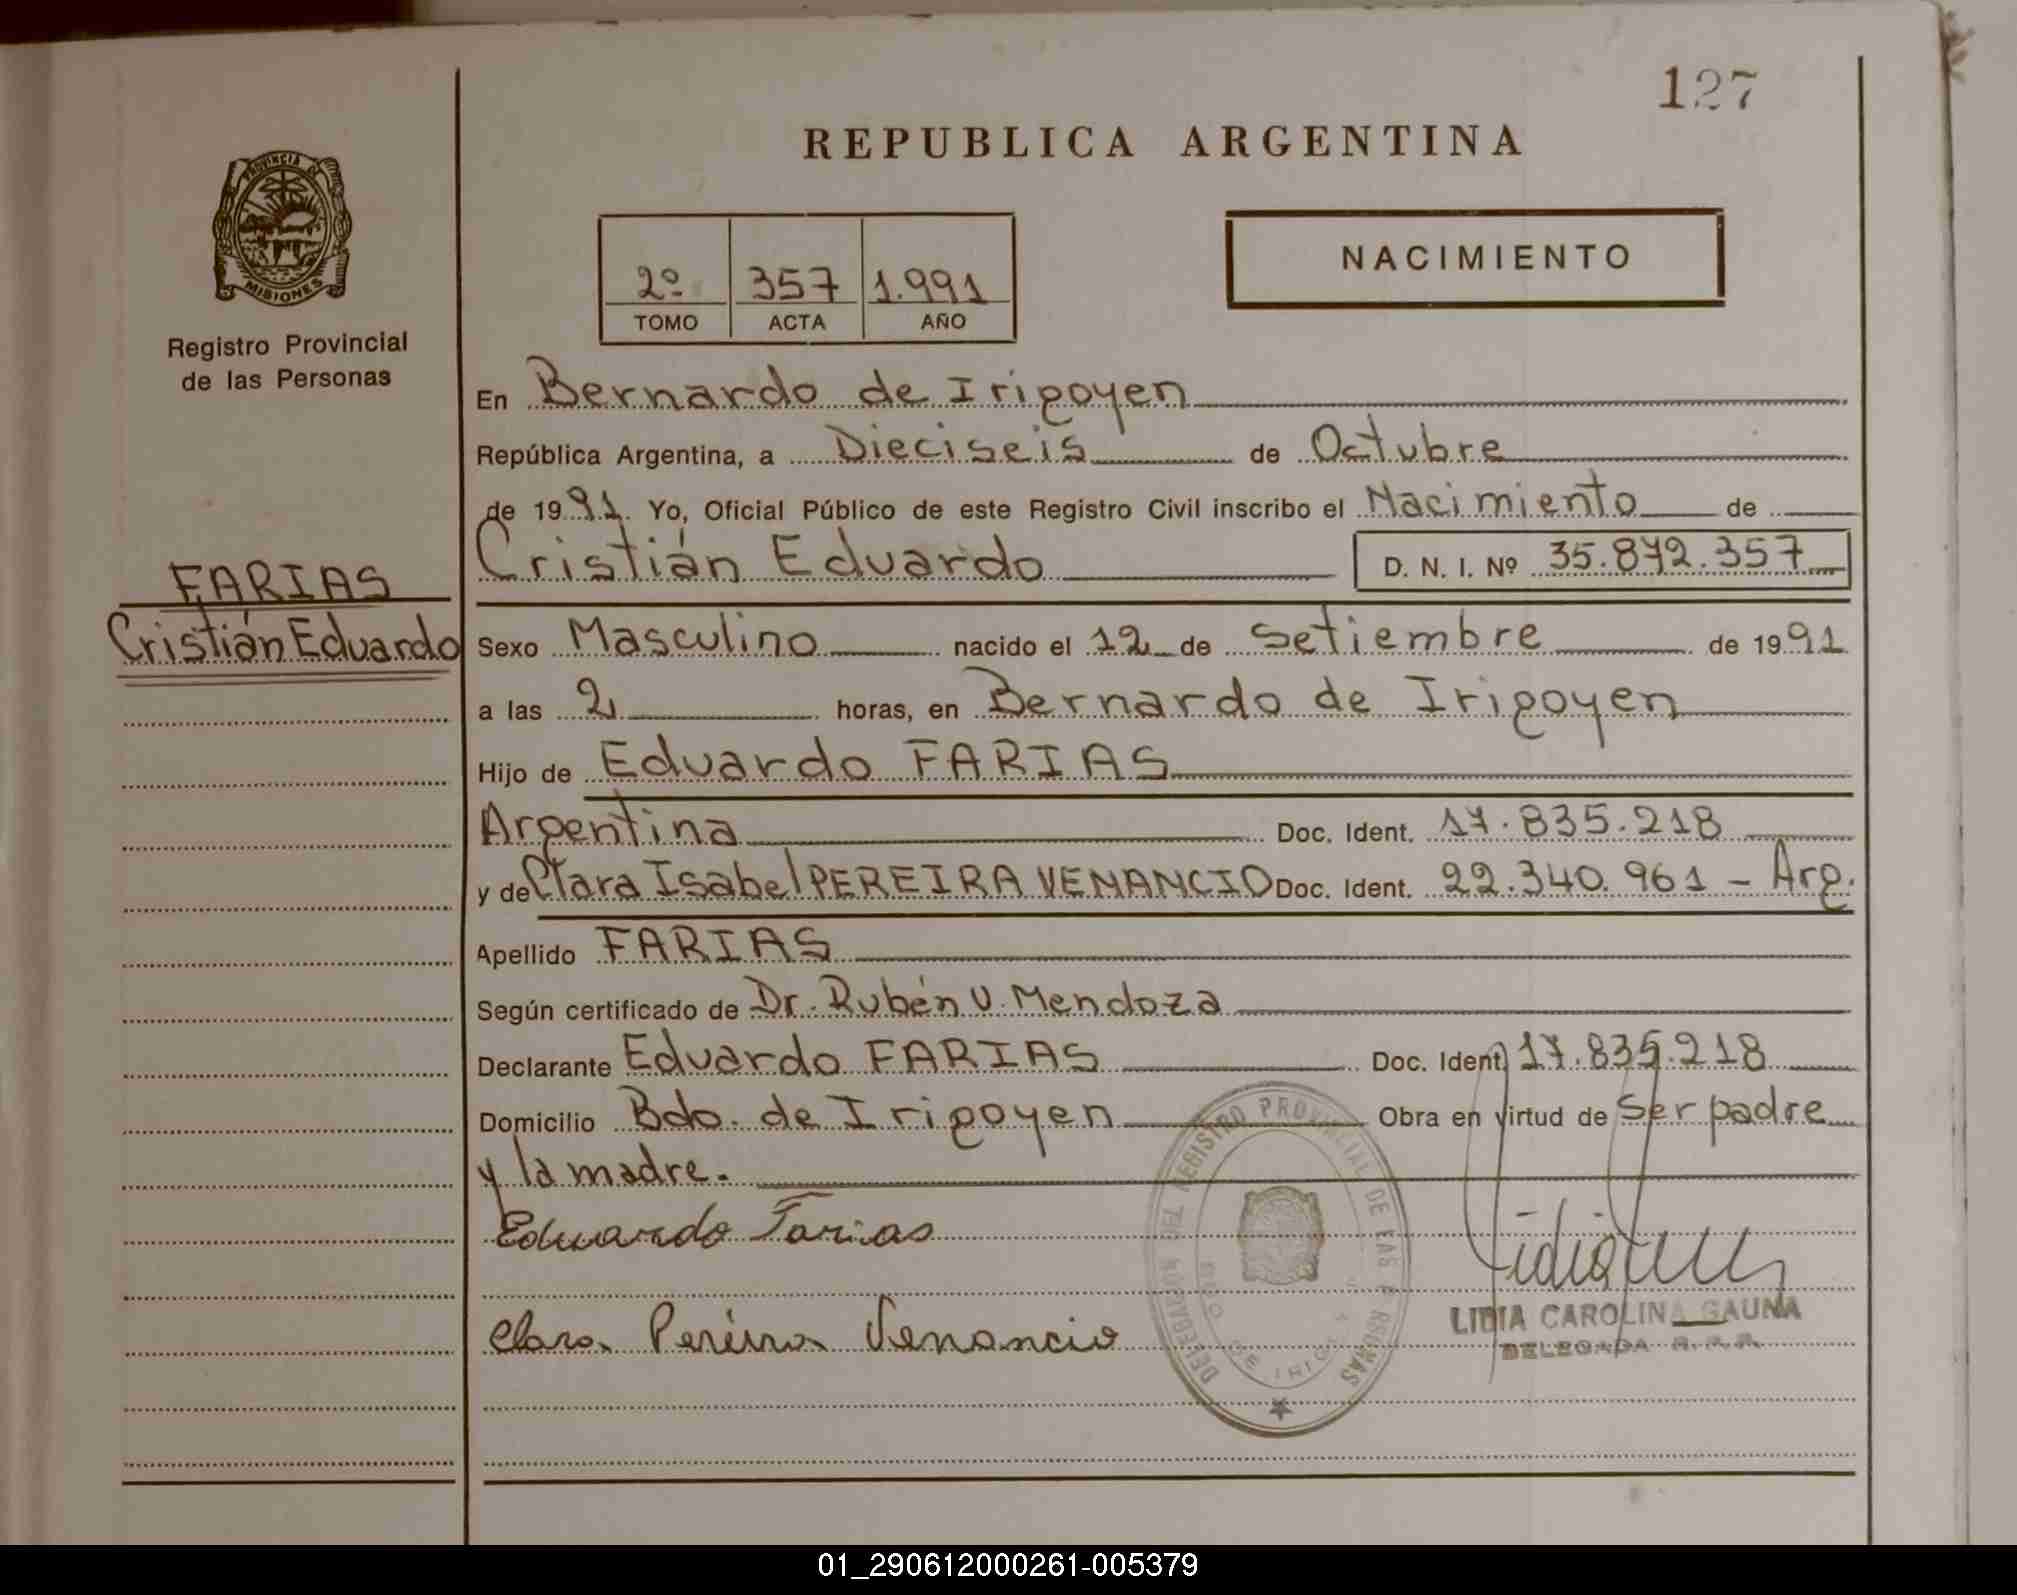 127
REPUBLICA ARGENTINA
PROVINCIA DE
MISIONES
Registro Provincial
de las Personas
2º 357 1.991
TOMO ACTA AÑO
NACIMIENTO
En Bernardo de Irigoyen
República Argentina, a Dieciseis de Octubre
de 1991. Yo, Oficial Público de este Registro Civil inscribo el Nacimiento de
Cristián Eduardo D. N. I. Nº 35.872.357
FARIAS
Cristián Eduardo
Sexo Masculino nacido el 12 de Setiembre de 1991
a las 2 horas, en Bernardo de Irigoyen
Hijo de Eduardo FARIAS
Argentina Doc. Ident. 17.835.218
y de Clara Isabel PEREIRA VENANCIO Doc. Ident. 22.340.961 - Arg.
Apellido FARIAS
Según certificado de Dr. Rubén V. Mendoza
Declarante Eduardo FARIAS Doc. Ident. 17.835.218
Domicilio Bdo. de Irigoyen Obra en virtud de Ser padre
y la madre.
Eduardo Farias
Clara Pereira Venancio
DELEGACION DEL REGISTRO PROVINCIAL DE LAS PERSONAS
BDO DE IRIGOYEN
LIDIA CAROLINA GAUNA
DELEGADA R.P.P.
01_290612000261-005379